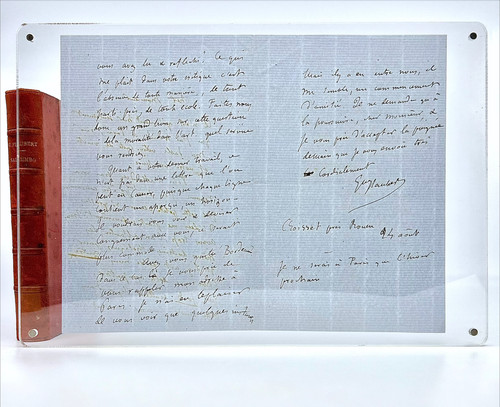 FLAUBERT
vous avez lu & réfléchi. Ce qui
me plaît dans votre critique c'est
l'absence de toute manie, de tout
parti pris, de toute école. Faites nous
donc un grand livre sur cette question
de la moralité dans l'art quel service
vous rendrez
Quant à votre dernier travail, ce
n'est pas dans une lettre que l'on
peut en causer, puisque chaque ligne
contient un aperçu, un horizon
Je voudrais vous voir & deviser
longuement avec vous avant
chez vous
Paris je n'ai eu le plaisir
de vous voir que quelques minutes
Mais il y a eu entre nous, il
me semble, un commencement
d'amitié. Je ne demande qu'à
la poursuivre, cher monsieur &
je vous prie d'accepter la poignée
de main que je vous envoie très
Cordialement
Gve Flaubert
Croisset près Rouen 24 août
Je ne serai à Paris que l'hiver
prochain